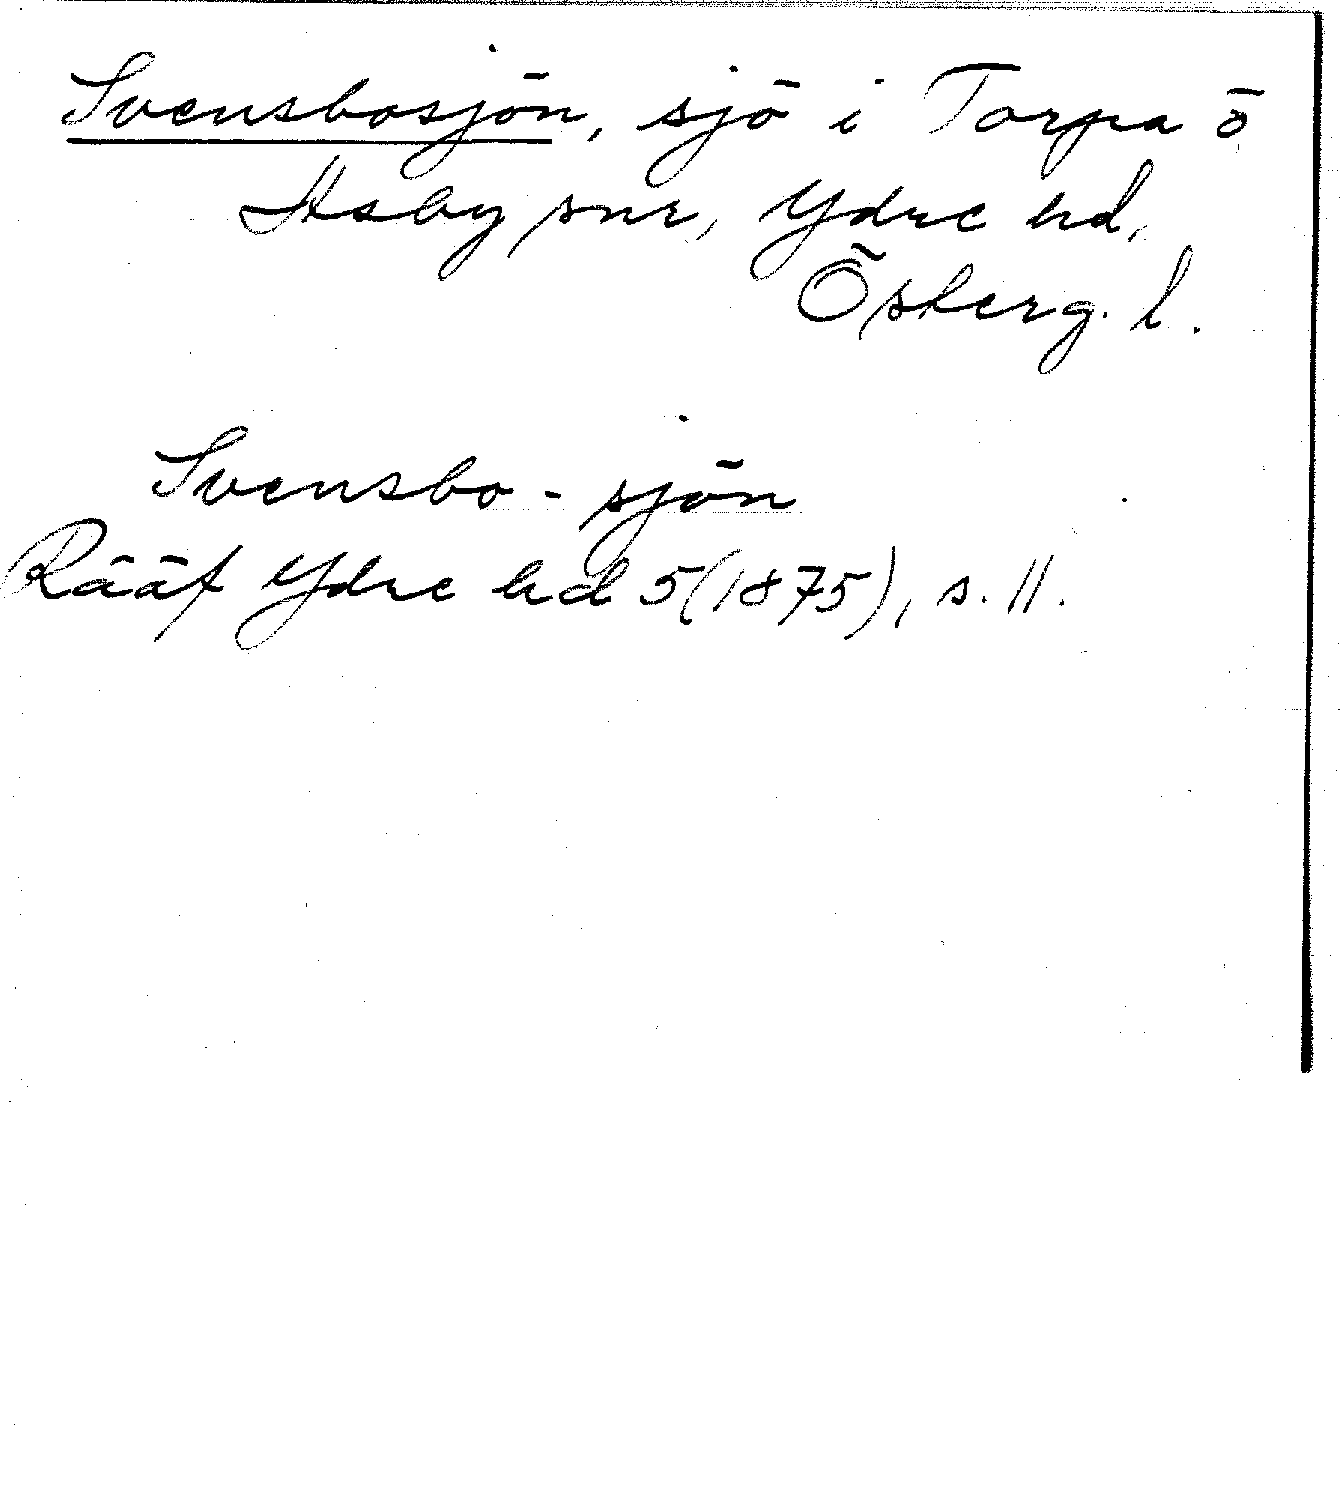 Svensbosjön, sjö i Torpa o
Asby snr, Ydre hd,
Österg. l.
Svensbo - sjön
Rääf Ydre hd 5 (1875), s. 11.